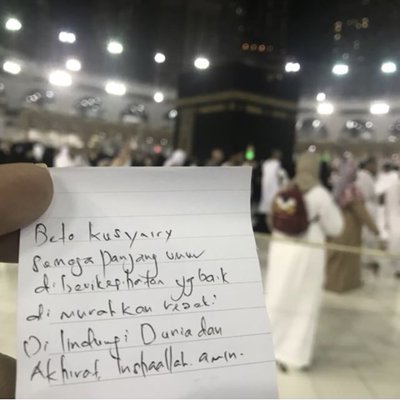 Beto Kusyairy
Semoga panjang umur
diberi kesihatan yg baik
di murahkan rezeki
Di lindungi Dunia dan
Akhirat, Inshaallah. amin.